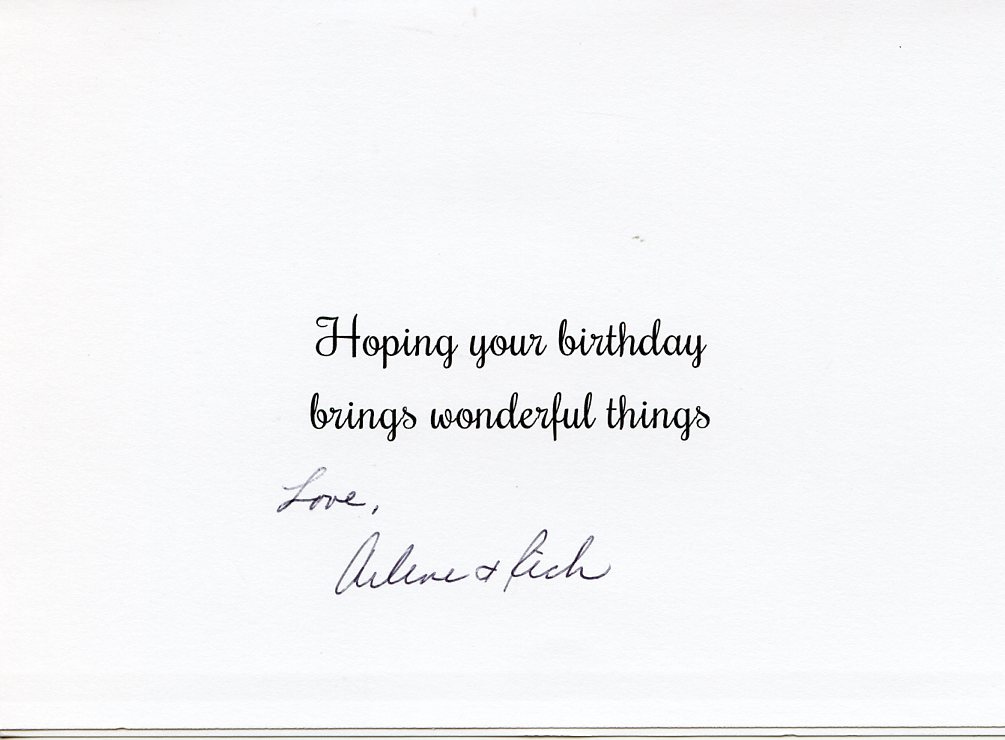 Hoping your birthday
brings wonderful things
Love,
Arlene & Rich